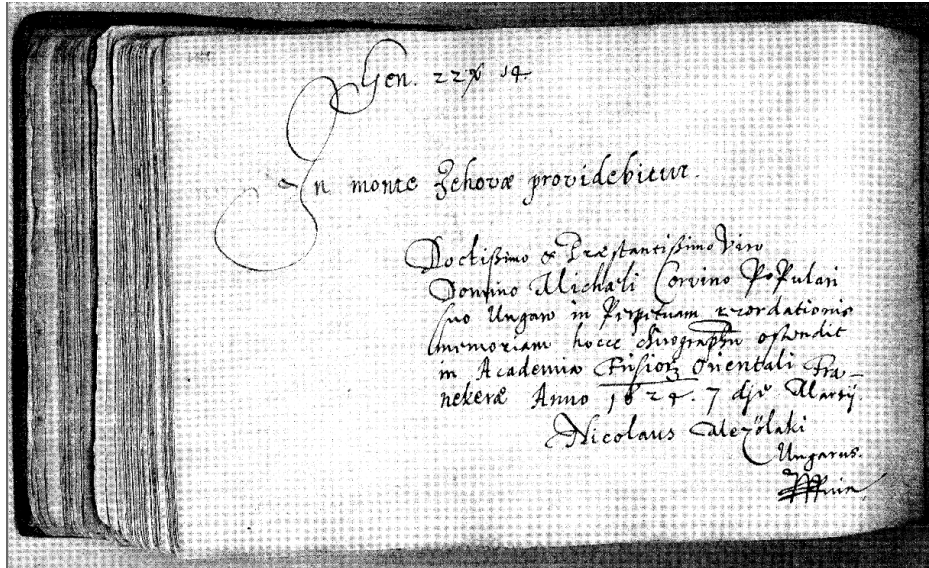 Gen. 22 ℣ 14.
In monte Jehovæ providebitur.
Doctißimo & Præstantißimo Viro
Domino Michaëli Corvino Populari
suo Ungaro in Perpetuam recordationis
memoriam hocce chirographū ostendit
in Academia Frisiorū Orientali Fra-
nekeræ Anno 1624. 7 die Martij
Nicolaus
Ungarus.